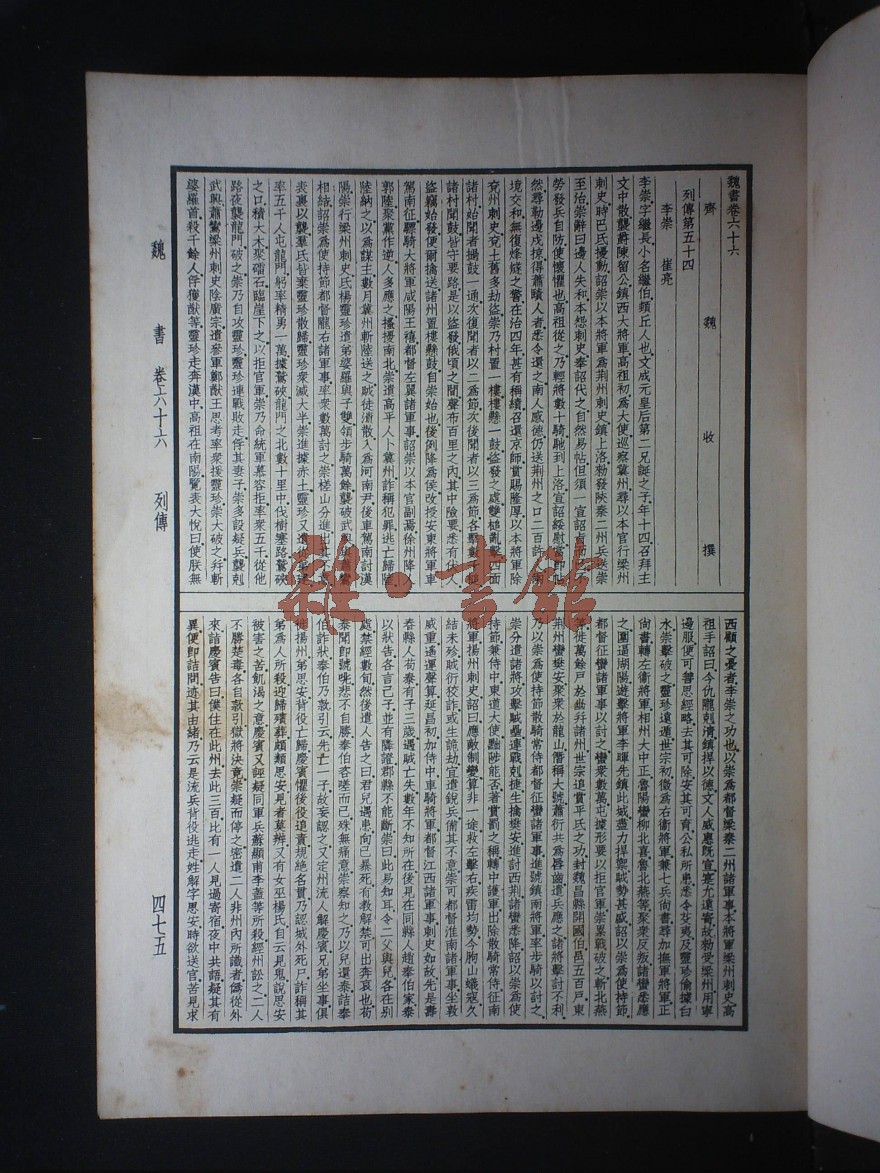 魏書卷六十六
齊魏收撰
列傳第五十四
李崇 崔亮
李崇字繼長小名繼伯頓丘人也文成元皇后第二兄誕之子年十四召拜主
文中散襲爵陳留公鎮西大將軍高祖初為大使巡察冀州尋以本官行梁州
刺史時巴氐擾動詔崇以本將軍為荊州刺史鎮上洛勑發陝秦二州兵送崇
至治崇辭曰邊人失和本怨刺史奉詔代之自然易帖但須一宣詔
勞發兵自防使懷懼也高祖從之乃輕將數十騎馳到上洛宣詔綏慰當即帖
然尋勒邊戍掠得蕭賾人者悉令還之南人感德仍送荊州之口二百許人
境交和無復烽燧之警在治四年甚有稱績召還京師賞賜隆厚以本將軍除
兗州刺史兗土舊多劫盜崇乃村置一樓樓懸一鼓盜發之處雙槌亂擊四面
諸村始聞者撾鼓一通次復聞者以二為節次後聞者以三為節各擊數千槌
諸村聞鼓皆守要路是以盜發俄頃之間聲布百里之內其中險要悉有伏人
盜竊始發便爾擒送諸州置樓懸鼓自崇始也後例降為侯改授安東將軍車
駕南征驃騎大將軍咸陽王禧都督左翼諸軍事詔崇以本官副焉徐州降人
郭陸聚黨作逆人多應之搔擾南北崇遣高平人卜冀州詐稱犯罪逃亡歸陸
陸納之以為謀主數月冀州斬陸送之賊徒潰散入為河南尹後車駕南討漢
陽崇行梁州刺史氐楊靈珍遣弟婆羅與子雙領步騎萬餘襲破武興與蕭鸞
相結詔崇為使持節都督隴右諸軍事率衆數萬討之崇槎山分進出其不意
表裏以襲羣氐皆棄靈珍散歸靈珍衆減太半崇進據赤土靈珍又遣從弟建
率五千人屯龍門躬率精勇一萬據鷲硤龍門之北數十里中伐樹塞路鷲硤
之口積大木聚礌石臨崖下之以拒官軍崇乃命統軍慕容拒率衆五千從他
路夜襲龍門破之崇乃自攻靈珍靈珍連戰敗走俘其妻子崇多設疑兵襲剋
武興蕭鸞梁州刺史陰廣宗遣參軍鄭猷王思考率衆援靈珍崇大破之幷斬
婆羅首殺千餘人俘獲猷等靈珍走奔漢中高祖在南陽覽表大悅曰使朕無
西顧之憂者李崇之功也以崇為都督梁秦二州諸軍事本將軍梁州刺史高
祖手詔曰今仇隴剋清鎮捍以德文人威惠既宣實允遠寄故勑受梁州用寧
邊服便可善思經略去其可除安其可育公私所患悉令芟夷及靈珍偷據白
水崇擊破之靈珍遠遁世宗初徵為右衛將軍兼七兵尚書尋加撫軍將軍正
尚書轉左衛將軍相州大中正魯陽蠻柳北喜魯北燕等聚衆反叛諸蠻悉應
之圍逼湖陽遊擊將軍李暉先鎮此城盡力捍禦賊勢甚盛詔以崇為使持節
都督征蠻諸軍事以討之蠻衆數萬屯據形要以拒官軍崇累戰破之斬北燕
等徙萬餘戶於幽幷諸州世宗追賞平氐之功封魏昌縣開國伯邑五百戶東
荊州蠻樊安聚衆於龍山僭稱大號蕭衍共為脣齒遣兵應之諸將擊討不利
乃以崇為使持節散騎常侍都督征蠻諸軍事進號鎮南將軍率步騎以討之
崇分遣諸將攻擊賊壘連戰剋捷生擒樊安進討西荊諸蠻悉降詔以崇為使
持節兼侍中東道大使黜陟能否著賞罰之稱轉中護軍出除散騎常侍征南
將軍揚州刺史詔曰應敵制變算非一途救左擊右疾雷均勢今朐山蟻寇久
結未殄賊衍狡詐或生詭劫宜遣銳兵備其不意崇可都督淮南諸軍事坐敦
威重遙運聲算延昌初加侍中車騎將軍都督江西諸軍事刺史如故先是壽
春縣人苟泰有子三歲遇賊亡失數年不知所在後見在同縣人趙奉伯家泰
以狀告各言己子並有隣證郡縣不能斷崇曰此易知耳令二父與兒各在別
處禁經數旬然後遣人告之曰君兒遇患向已暴死有教解禁可出奔哀也苟
泰聞即號咷悲不自勝奉伯咨嗟而已殊無痛意崇察知之乃以兒還泰詰奉
伯詐狀奉伯乃款引云先亡一子故妄認之又定州流人解慶賓兄弟坐事俱
徙揚州弟思安背役亡歸慶賓懼後役追責規絕名貫乃認城外死尸詐稱其
弟為人所殺迎歸殯葬頗類思安見者莫辨又有女巫楊氏自云見鬼說思安
被害之苦飢渴之意慶賓又誣疑同軍兵蘇顯甫李蓋等所殺經州訟之二人
不勝楚毒各自款引獄將決竟崇疑而停之密遣二人非州內所識者偽從外
來詣慶賓告曰僕住在此州去此三百比有一人見過寄宿夜中共語疑其有
異便即詰問迹其由緒乃云是流兵背役逃走姓解字思安時欲送官苦見求
魏書 卷六十六 列傳
四七五
雜·書館